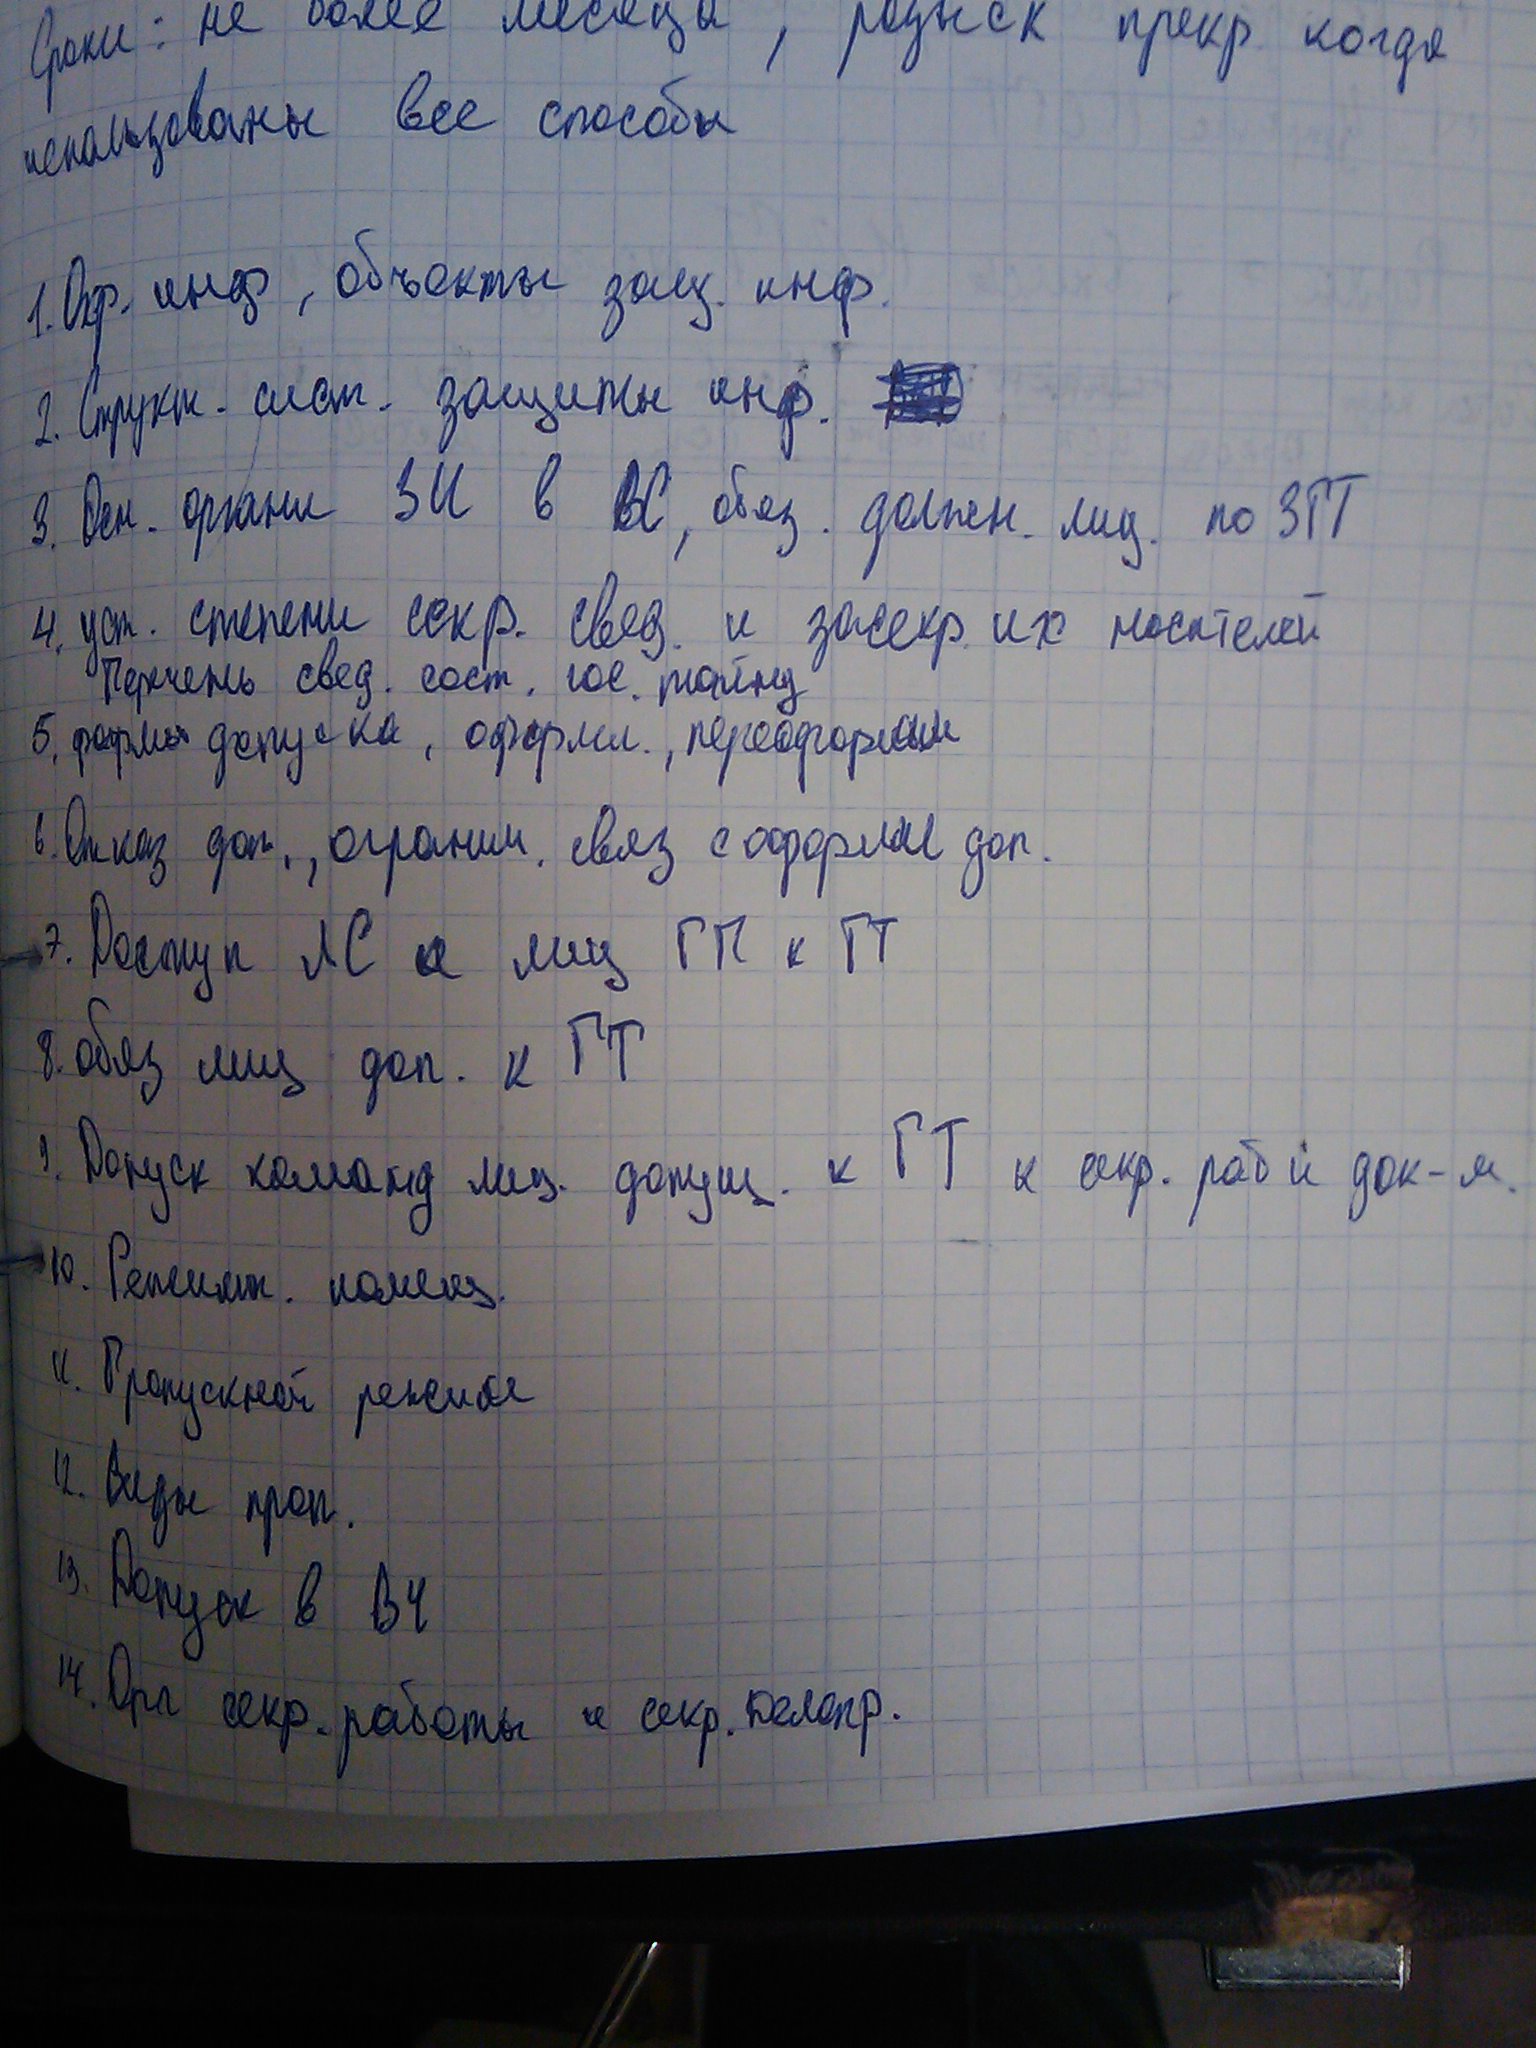 Сроки: не более месяца, розыск прекр когда
использованы все способы
1. Охр. инф, объекты защ. инф.
2. Структ. сист. защиты инф.
3. Осн. органы ЗИ в ВС, обяз. должен. лиц. по ЗГТ
4. уст. степени секр. свед. и засекр. их носителей
Перечень свед. сост. гос. тайну
5. формы допуска, оформл., переоформл
6. Отказ доп., огранич. связ с оформл доп.
7. Доступ ЛС и лиц ГП к ГТ
8. обяз лиц доп. к ГТ
9. Допуск команд лиц. допущ. к ГТ к секр. раб и док-м.
10. Режимн. помещ.
11. Пропускной режим
12. Виды проп.
13. Допуск в ВЧ
14. Орг секр. работы и секр. делопр.